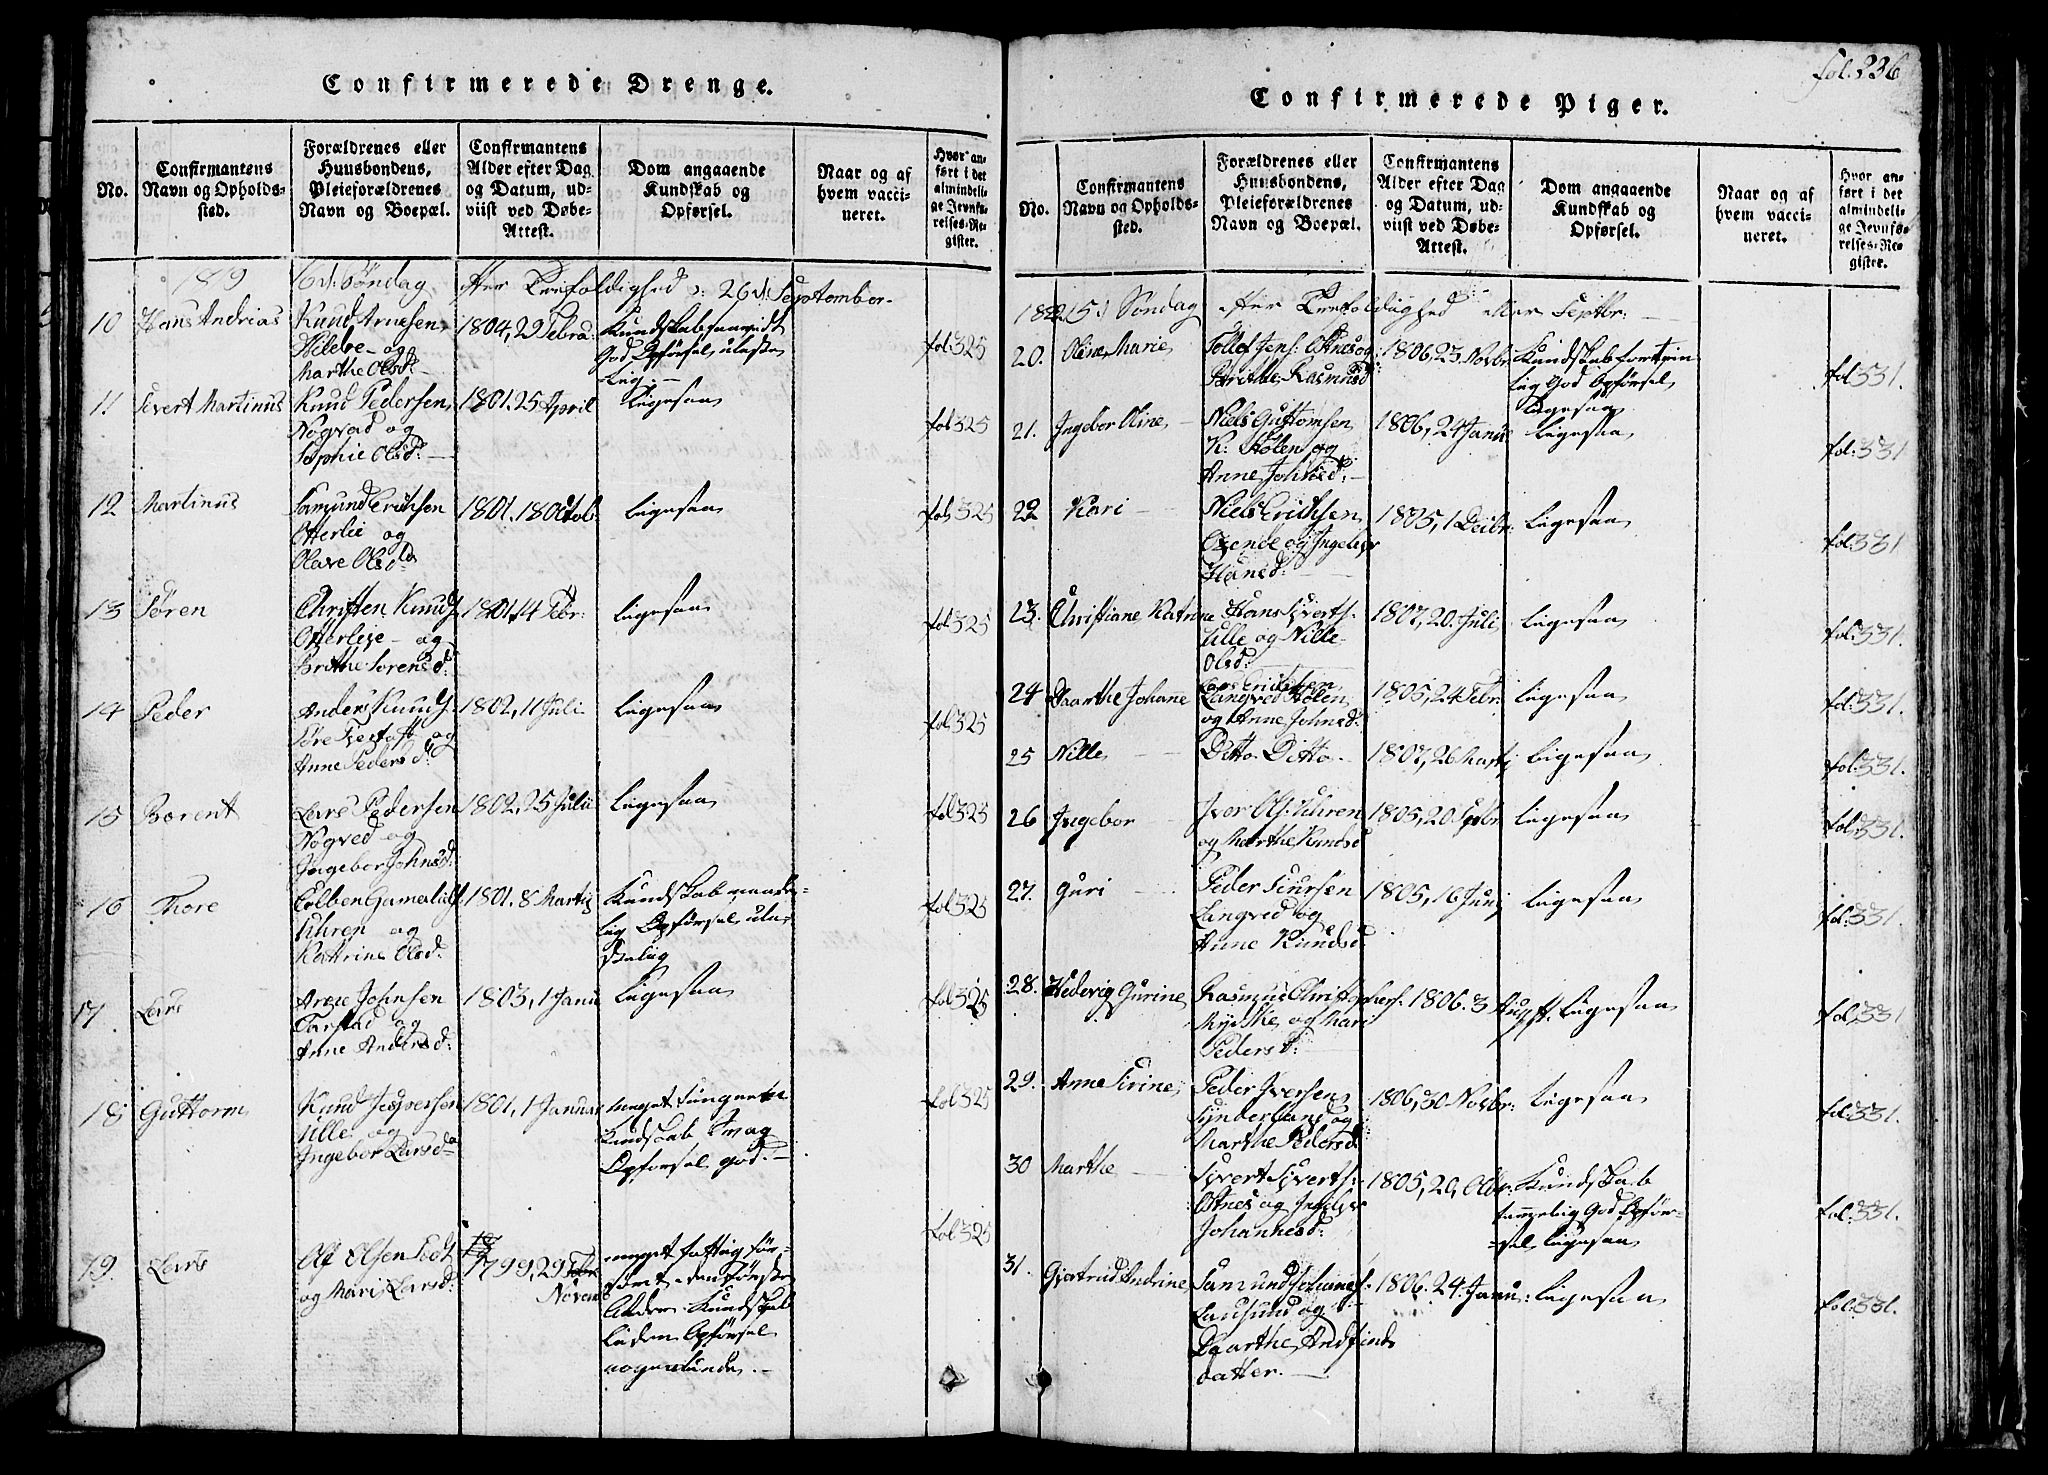 Confirmerede Drenge.
No.
Confirmantens
Navn og Opholds-
sted.
Forældrenes eller
Huusbondens,
Pleieforældrenes
Navn og Boepæl.
Confirmantens
Alder efter Dag
og Datum, ud-
viist ved Døbe-
Attest.
Dom angaaende
Kundskab og
Opførsel.
Naar og af
hvem vacci-
neret.
Hvor an-
ført i det
almindeli-
ge Jevnfø-
relses-Re-
gister.
1819 16d: Søndag efter Treefoldighed d: 26d: September
10 Hans Andrias
Knud Arnesen
Hildre og
Marthe Olsd:
1804, 29 Febru:
Kundskab
God Opførsel ulaste
lig.
fol: 325
11 Sivert Martinus
Knud Pedersen
Nogved og
Sophie Olsd:
1801. 25 April
Ligesaa
fol 325
12 Martinus
Samund Erichsen
Otterlie og
Olave Olsd
1801. 18 Octob:
Ligesaa
fol: 325
13 Søren
Christen Knuds:
Otterlie og
Brithe Sørensd:
1801. 14 Febr:
Ligesaa
fol: 325
14 Peder
Anders Knuds:
og
Anne Pedersd:
1802, 11 Juli
Ligesaa
fol 325
15 Borent
Lars Pedersen
Nogved og
Ingebor Johnsd:
1802, 25 Julii
Ligesaa
fol 325
16 Thore
Colben Gamaliels:
Uhren og
Katrine Olsd:
1801. 8 Martij
Kundskab maade-
lig Opførsel ula-
stelig
fol 325
17. Lars
Arne Johnsen
Farstad og
Anne Andersd:
1803, 1 Janu
Ligesaa
fol: 325
18 Guttorm
Knud Jespersen
Ulle og
Ingebor Larsd
1801, 1 Januar
meget
Kundskab svag
Opførsel god.
fol 325
19. Lars
Ole Olsen
og Mari Larsd:
1799, 29
Novem
meget fattig for-
sømt
Alder Kundskab
liden Opførsel
nogenlunde.
fol 325
fol. 236
Confirmerede Piger.
No.
Confirmantens
Navn og Opholds-
sted.
Forældrenes eller
Huusbondens,
Pleieforældrenes
Navn og Boepæl.
Confirmantens
Alder efter Dag
og Datum, ud-
viist ved Døbe-
Attest.
Dom angaaende
Kundskab og
Opførsel.
Naar og af
hvem vacci-
neret.
Hvor an-
ført i det
almindeli-
ge Jevnfø-
relses-Re-
gister.
15d Søndag efter Treefoldighed Septbr:
20. Oline Marie
Tollef Jens: Østnes og
Brithe Rasmusd
1806, 23 Novbr
Kundskab fortrin
lig God Opførsel
Ligesaa
fol 331.
21. Ingebor Oline
Niels Guttomsen
K: Hølen og
Anne Johnsd:
1806, 24 Janu
Ligesaa
fol: 331
22 Kari
Niels Erichsen
og Ingeborg
Hansd:
1805, 1 Decbr:
Ligesaa
fol: 331
23. Christiane Katrine
Hans Siverts:
Ulle og Nille
Olsd:
1807, 20. Juli
Ligesaa
fol: 331.
24 Daarthe Johane
Lars Erichsen
Langved Hølen
og Anne Johnsd:
1805, 24 Febr:
Ligesaa
fol: 331.
25 Nille
Ditto Ditto
1807, 26 Martij
Ligesaa
fol: 331.
26 Ingebor
Iver Ols: Uhren
og Marthe Knudsd
1805, 20
Ligesaa
fol: 331.
27. Guri
Peder Siursen
Langved og
Anne Knudsd:
1805, 16 Junj
Ligesaa
fol: 331.
28. Hedevig Gurine
Rasmus Christophers:
Mykle og Mari
Pedersd:
1806. 3 August.
Ligesaa
fol: 331
29. Anne Sirine
Peder Iversen
Synderland og
Marthe Pedersd
1806, 30 Novbr:
Ligesaa
fol: 331.
30 Marthe
Sivert Siverts:
Østnes og Ingebor
Johannesd:
1805, 29, Octbr:
Kundskab
tammelig God Opfør-
sel Ligesaa
fol: 331.
31. Giertrud Andrine
Samund Johannes:
Lausund og
Daarthe Andfinds
datter.
1806. 24 Janu:
Ligesaa
fol: 331.